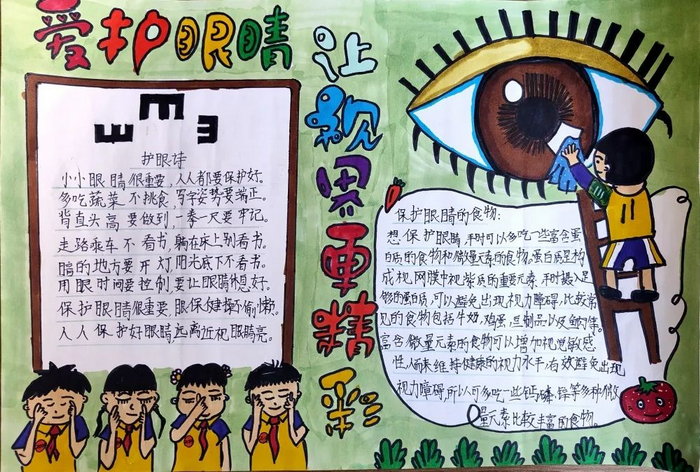 爱护眼睛
让视界更精彩
护眼诗
小小眼睛很重要，人人都要保护好。
多吃蔬菜不挑食，写字姿势要端正。
背直头高要做到，一拳一尺要牢记。
走路乘车不看书，躺在床上别看书。
暗的地方要开灯，阳光底下不看书。
用眼时间要控制，要让眼睛休息好。
保护眼睛很重要，眼保健操不偷懒。
人人保护好眼睛，远离近视眼睛亮。
保护眼睛的食物：
想保护眼睛，平时可以多吃一些富含蛋
白质的食物和微量元素的食物，蛋白质是构
成视网膜中视紫质的重要元素，平时摄入足
够的蛋白质，可以避免出现视力障碍，比较常
见的食物包括牛奶，鸡蛋，豆制品以及鱼肉等。
富含微量元素的食物可以增加视觉敏感
性，从而来维持健康的视力水平，有效避免出现
视力障碍，所以可多吃一些钙、磷、锌等多种微
量元素比较丰富的食物。